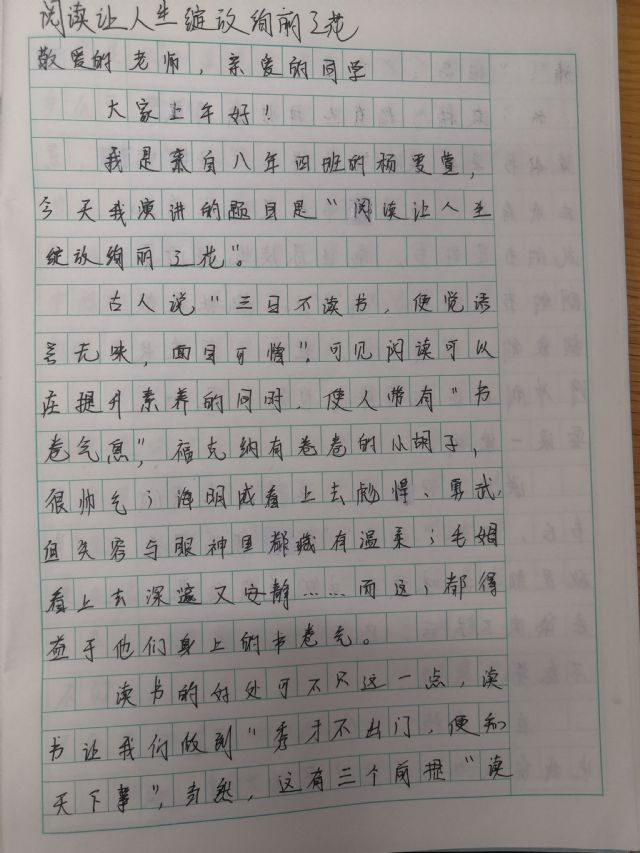 阅读让人生绽放绚丽之花
敬爱的老师，亲爱的同学
大家上午好！
我是来自八年四班的杨雯萱，
今天我演讲的题目是“阅读让人生
绽放绚丽之花”。
古人说“三日不读书，便觉语
言无味，面目可憎”，可见阅读可以
在提升素养的同时，使人带有“书
卷气息”，福克纳有卷卷的小胡子，
很帅气；海明威看上去彪悍、勇武，
但笑容与眼神里都藏有温柔；毛姆
看上去深邃又安静……而这；都得
益于他们身上的书卷气。
读书的好处可不只这一点，读
书让我们做到“秀才不出门，便知
天下事”，当然，这有三个前提“读